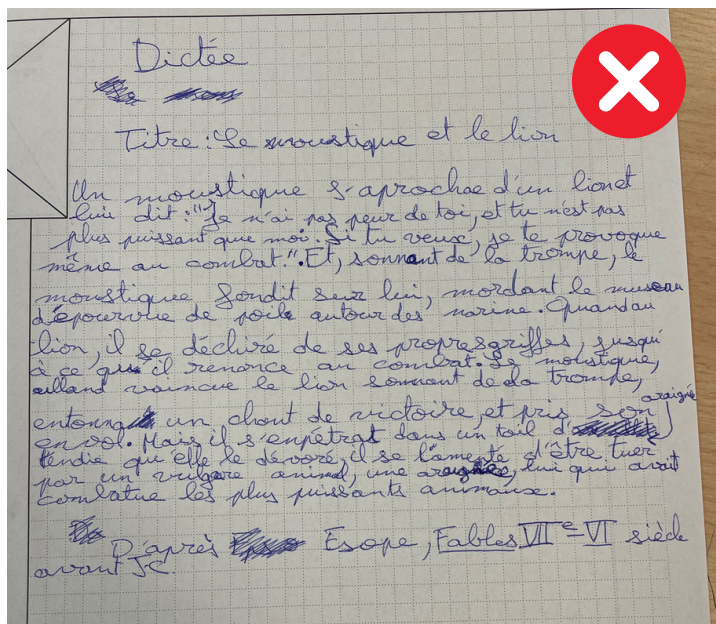 Dictée
Titre : Le moustique et le lion
Un moustique s'aprochae d'un lion et
lui dit : "Je n'ai pas peur de toi, et tu n'est pas
plus puissant que moi. Si tu veux, je te provoque
même au combat.". Et, sonnant de la trompe, le
moustique fondit seur lui, mordant le museau
d'épourvue de poils autour des narine. Quand au
lion, il se déchiré de ses propres griffes, jusqu'
à ce qu'il renonce au combat. Le moustique,
ailland vaincue le lion sonnant de la trompe,
entonna un chant de victoire, et pris son
envol. Mais il s'enpétrat dans un toil d' araignée
tendie qu'elle le dévoré, il se lamenté d'être tuer
par un vulgare animal, une araignée, lui qui avait
combatue les plus puissants animaux.
D'après Esope, Fables VIIe-VI siècle
avant JC.